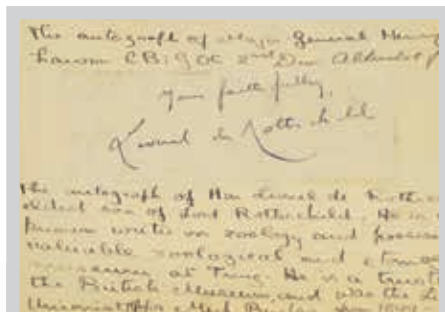 The autograph of Major General Henry
CB: GOC 2nd Div Aldershot
Yours faithfully,
Lionel de Rothschild
The autograph of Hon Lionel de Rothsc
eldest son of Lord Rothschild. He is a
known writer on zoology and possess
valuable zoological and
museum at Tring. He is a truste
the British Museum, and was the Li
Unionist for Mid Bucks from 1899 -